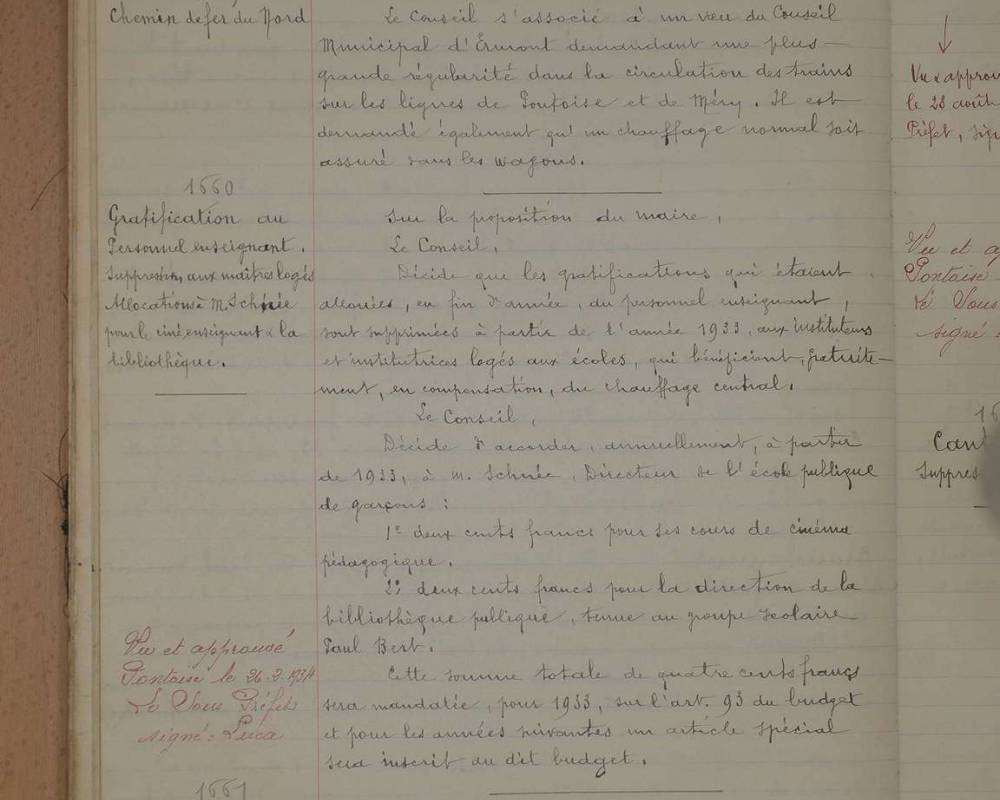 Chemin de fer du Nord
Le Conseil s'associe à un vœu du Conseil
Municipal d'Ermont demandant une plus
grande régularité dans la circulation des trains
sur les lignes de Pontoise et de Méry. Il est
demandé également qu'un chauffage normal soit
assuré dans les wagons.
1660
Gratification au
Personnel enseignant.
Suppression, aux maîtres logés
Allocations à M. Schnée
pour le ciné, enseignant & la
bibliothèque.
Sur la proposition du maire,
Le Conseil,
Décide que les gratifications qui étaient
allouées, en fin d'année, au personnel enseignant,
sont supprimées à partir de l'année 1933, aux instituteurs
et institutrices logés aux écoles, qui bénéficient, gratuite-
ment, en compensation, du chauffage central.
Le Conseil,
Décide d'accorder, annuellement, à partir
de 1933, à M. Schnée, Directeur de l'école publique
de garçons :
1° deux cents francs pour ses cours de cinéma
pédagogique.
2° deux cents francs pour la direction de la
bibliothèque publique, tenue au groupe scolaire
Paul Bert.
Cette somme totale de quatre cents francs
sera mandatée, pour 1933, sur l'art. 93 du budget
et pour les années suivantes un article spécial
sera inscrit au dit budget.
Vu et approuvé
Pontoise le 26-2-1934
Le Sous Préfet
signé : Luca
1661
Vu & approu
le 28 août
Préfet, sign
Vu et a
Pontoise
Le Sous
signé
Can
Suppres